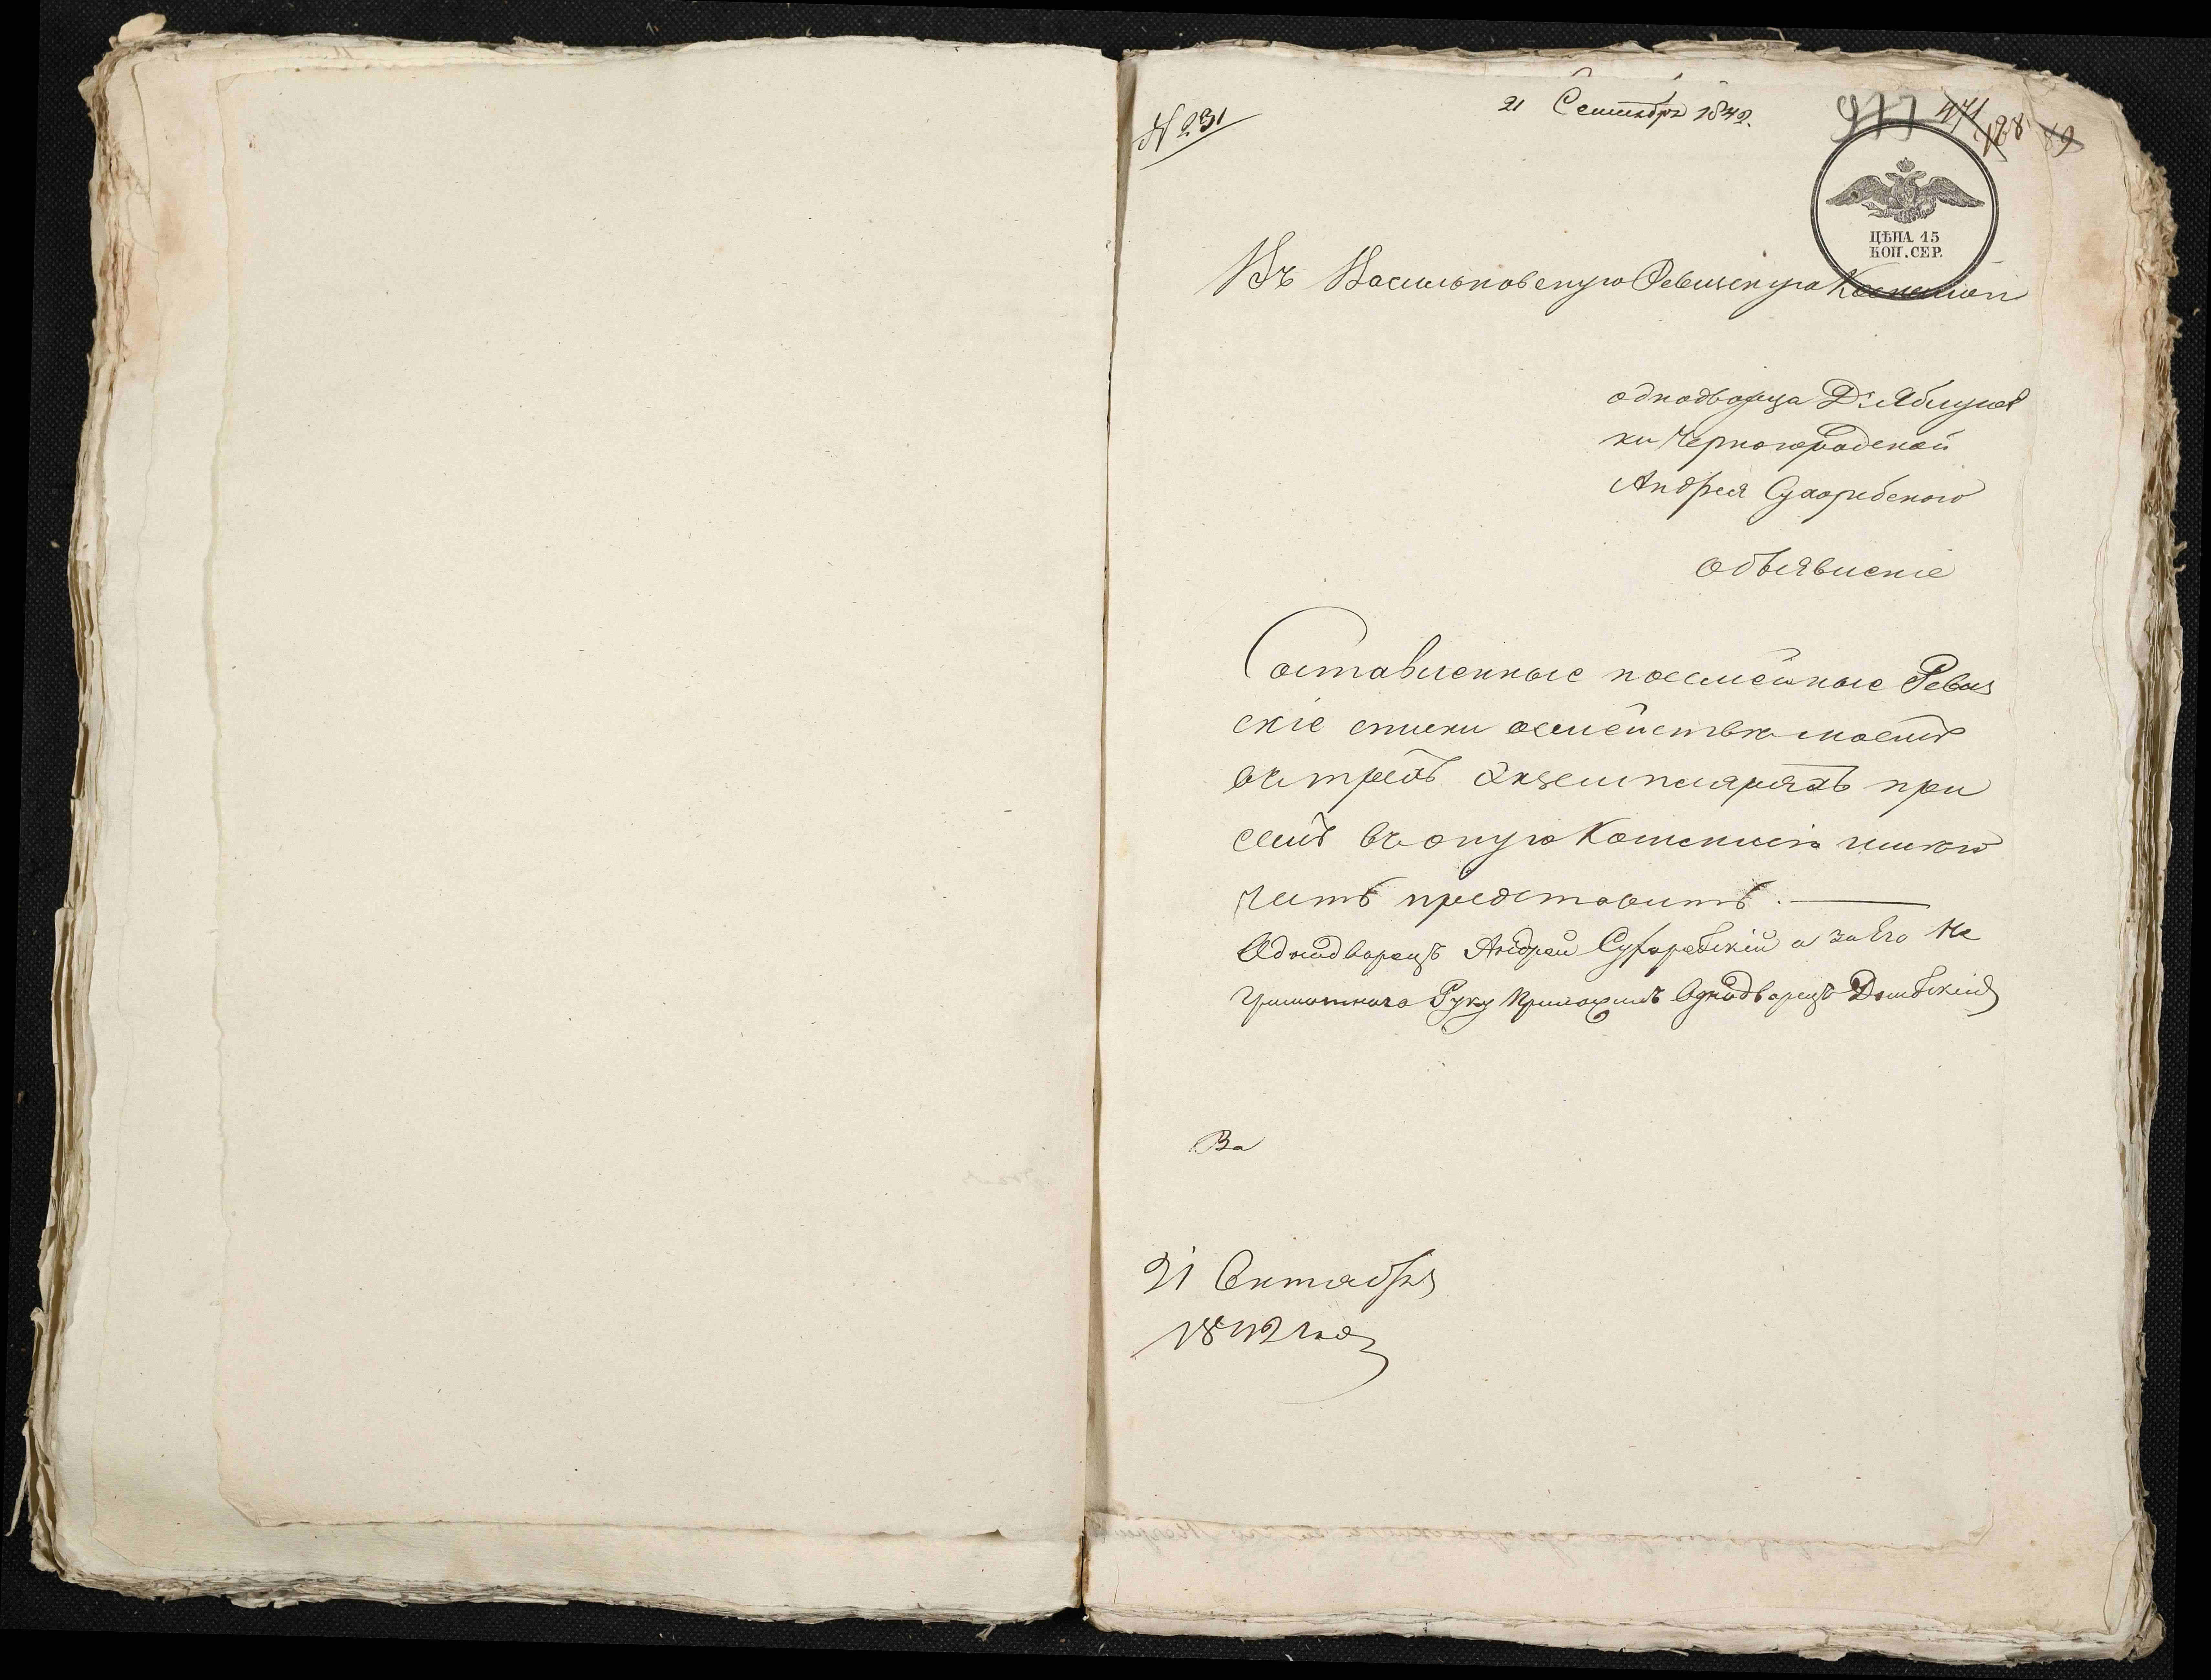 № 231
21 Сентября 1842.
977 471 128 89
ЦѢНА 15
КОП. СЕР.
Въ Васильковскую Ревизскую Комисию
однодворца Д. Яблунов
ки Черногородской
Андрея Сухоребского
объявление
Составленные посемейные Ревиз
скіе списки о семействе моемъ
въ трехъ экземплярахъ при
семъ въ оную Комисию имею
честь представить.
Однодворецъ Андрей Сухоребскій а за Его Не
Грамотнаго Руку Приложилъ Однодворецъ
Ва
21 Октября
1842 года